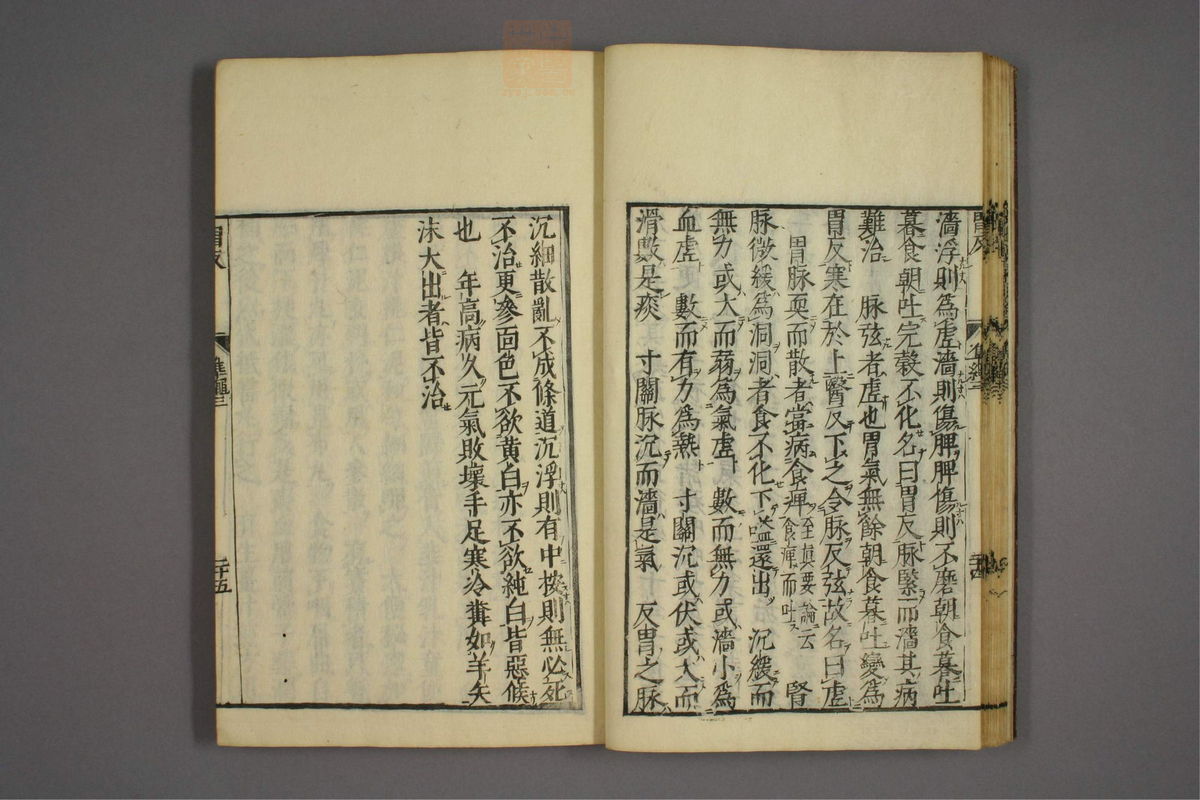 濇浮則爲虛濇則傷脾脾傷則不磨朝食暮吐
暮食朝吐完穀不化名曰胃反脉緊而濇其病
難治　脉弦者虛也胃氣無餘朝食暮吐變爲
胃反寒在於上醫反下之令脉反弦故名曰虛
胃脉耎而散者當病食痺至眞要論云食痺而吐　腎
脉微緩爲洞洞者食不化下嗌還出　沉緩而
無力或大而弱爲氣虛　數而無力或濇小爲
血虛　數而有力爲熱　寸關沉或伏或大而
滑數是痰　寸關脉沉而濇是氣　反胃之脉
沉細散亂不成條道沉浮則有中按則無必死
不治更參面色不欲黃白亦不欲純白皆惡候
也　年高病久元氣敗壞手足寒冷糞如羊矢
沫大出者皆不治
準繩
二十五